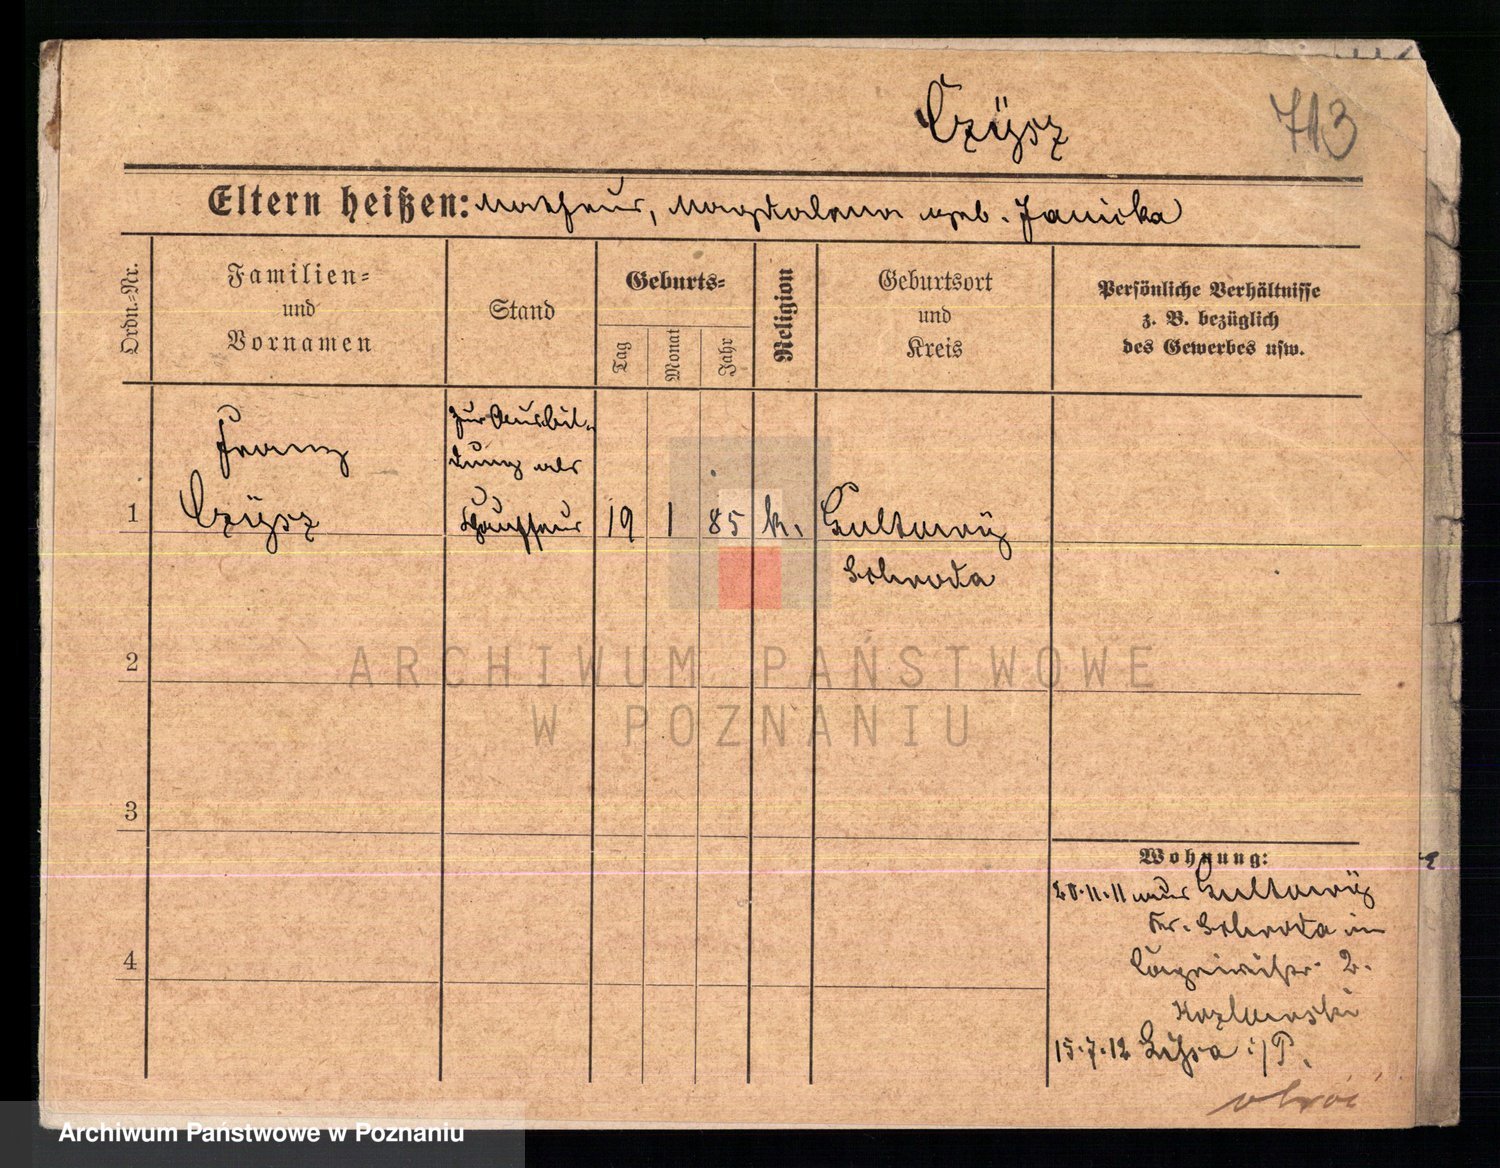 Czÿsz
713
Eltern heißen: Matheus, Magdalena geb. Janicka
Ordn.-Nr.
Familien-
und
Vornamen
Stand
Geburts-
Tag
Monat
Jahr
Religion
Geburtsort
und
Kreis
Persönliche Verhältnisse
z. B. bezüglich
des Gewerbes usw.
1
Franz
Czÿsz
zur Ausbil-
dung als
Chauffeur
19
1
85
k.
Gultowÿ
Schroda
2
3
4
Wohnung:
20.11.11 aus Gultowÿ
Kr. Schroda in
2.
Kozlowski
15.7.12 Lissa i/P.
obróć
ARCHIWUM PAŃSTWOWE
W POZNANIU
Archiwum Państwowe w Poznaniu